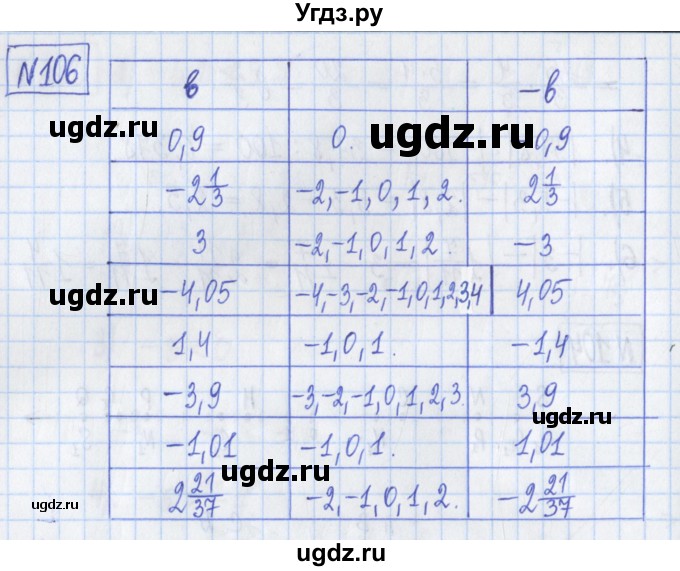 Угдз.ру
№106
в −в
0,9 0. −0,9
−2 1/3 −2,−1,0,1,2. 2 1/3
3 −2,−1,0,1,2. −3
−4,05 −4,−3,−2,−1,0,1,2,3,4 4,05
1,4 −1,0,1. −1,4
−3,9 −3,−2,−1,0,1,2,3. 3,9
−1,01 −1,0,1. 1,01
2 21/37 −2,−1,0,1,2. −2 21/37
ugdz.ru
ugdz.ru
ugdz.ru
ugdz.ru
ugdz.ru
ugdz.ru
ugdz.ru
ugdz.ru